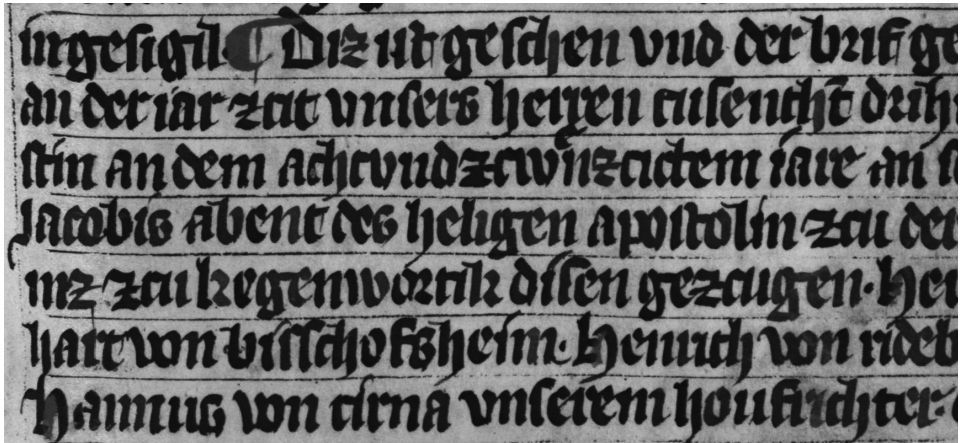 ingesigil. ¶ Diz ist geschen vnd der brif ge
an der iar zcit vnsers herren tusencht drih
stin an dem achtvndzcwenzcictem iare an s
Jacobis abent des heligen apostolin zcu der
inz zcu kegenwortik disen gezcugen. her
hart von bisschofsheim. heinrich von rideb
hannus von tirna vnserem houfrichter.